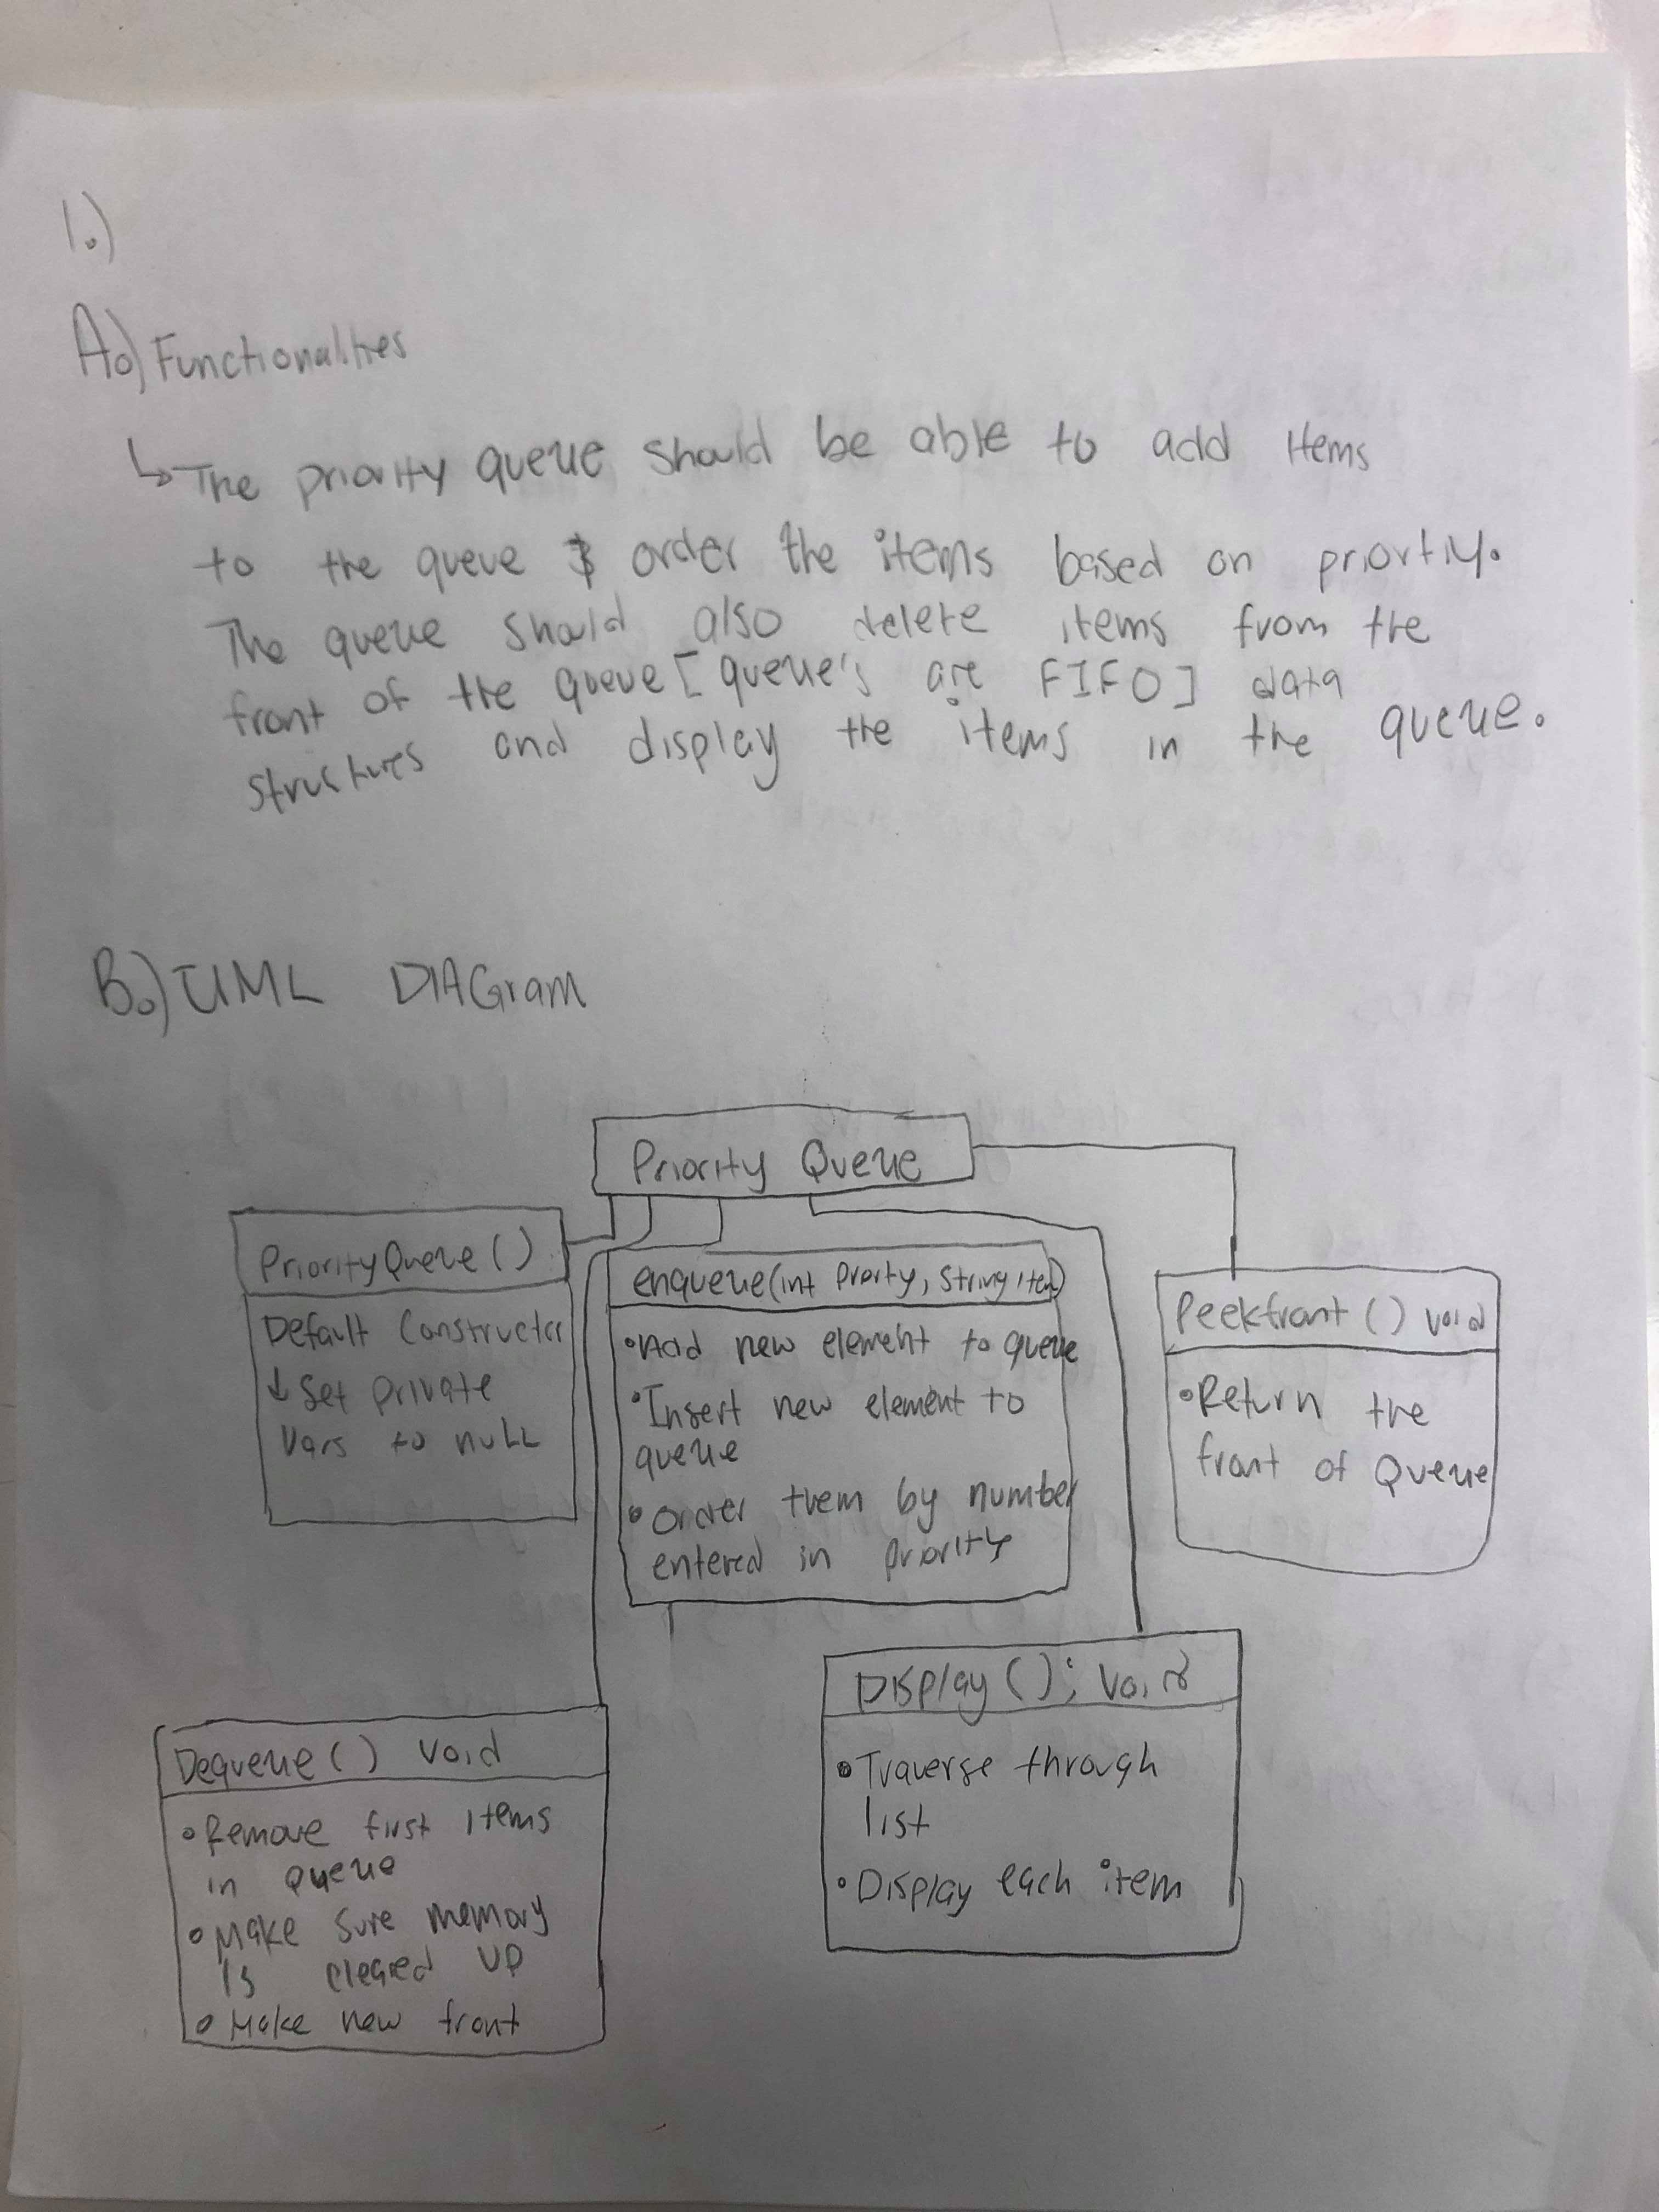 1.)
A.) Functionalities
↳ The priority queue should be able to add items
to the queue & order the items based on priortiy.
The queue should also delete items from the
front of the queue [queue's are FIFO] data
structures and display the items in the queue.
B.) UML DIAGram
Priority Queue
PriorityQueue()
Default Constructor
↓ Set private
vars to null
enqueue(int Prority, String item)
• Add new element to queue
• Insert new element to
queue
• Order them by number
entered in priority
Peekfront() void
• Return the
front of Queue
Dequeue() void
• Remove first items
in queue
• Make sure memory
is cleared up
• Make new front
Display(); void
• Traverse through
list
• Display each item